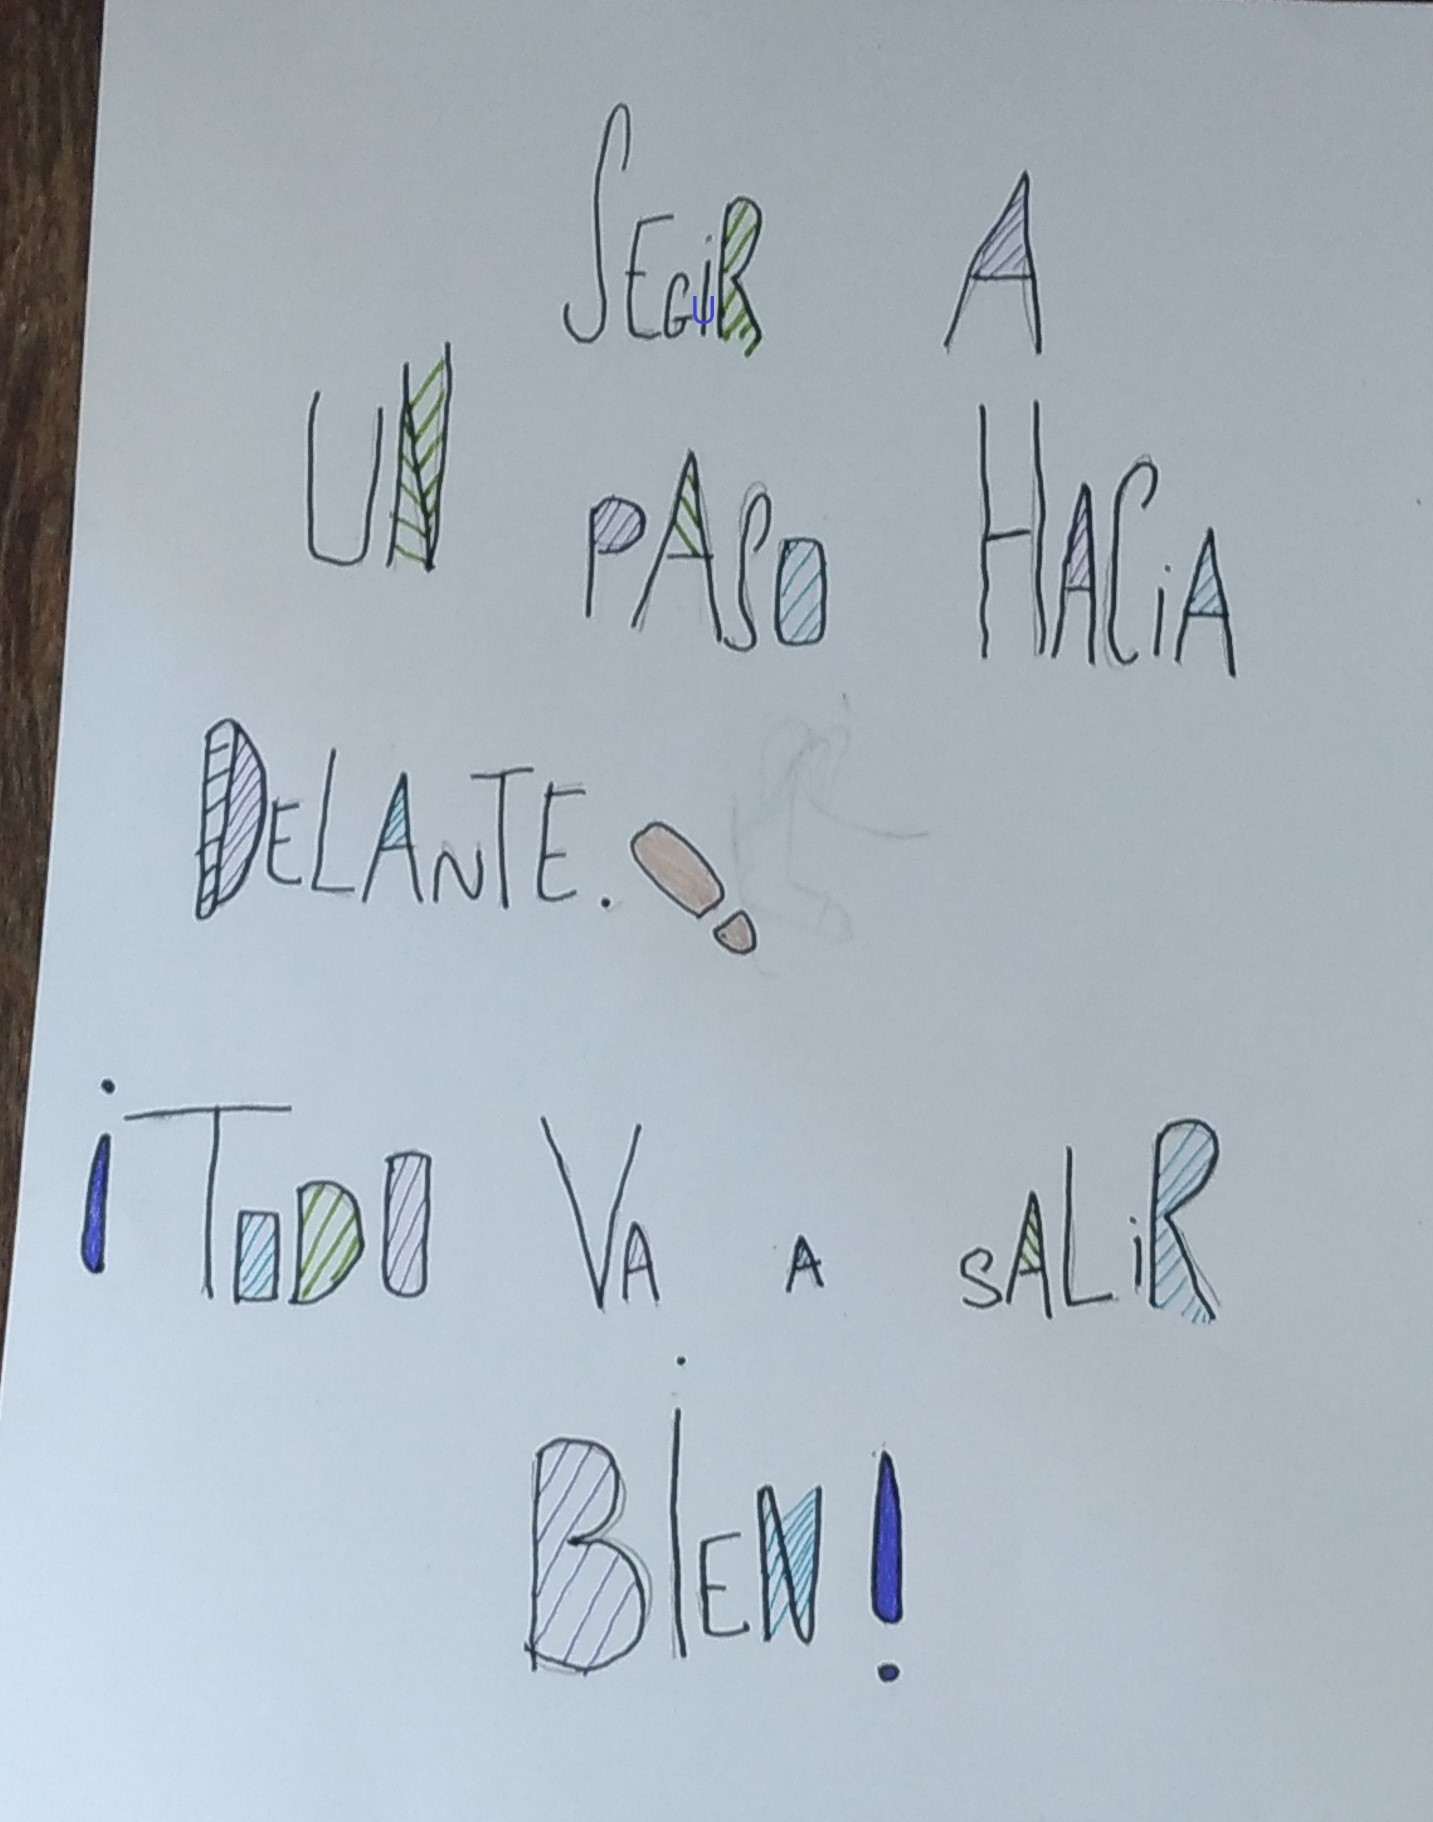 SEGUiR A
UN PASO HACiA
DELANTE.
¡TODO VA A SALiR
BiEN!